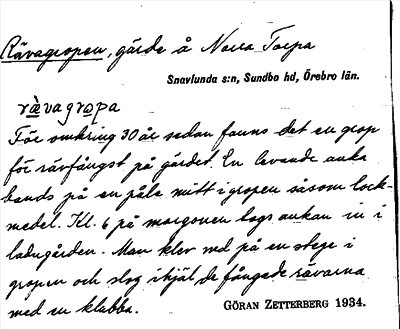 Rävagropen, gärde å Norra Torpa
Snavlunda s:n, Sundbo hd, Örebro län.
rä̀vagro̲pa
För omkring 30 år sedan fanns det en grop
för rävfångst på gärdet. En levande anka
bands på en påle mitt i gropen såsom lock-
medel. Kl. 6 på morgonen togs ankan in i
ladugården. Man klev ned på en stege i
gropen och slog ihjäl de fångade rävarna
med en klubba.
GÖRAN ZETTERBERG 1934.